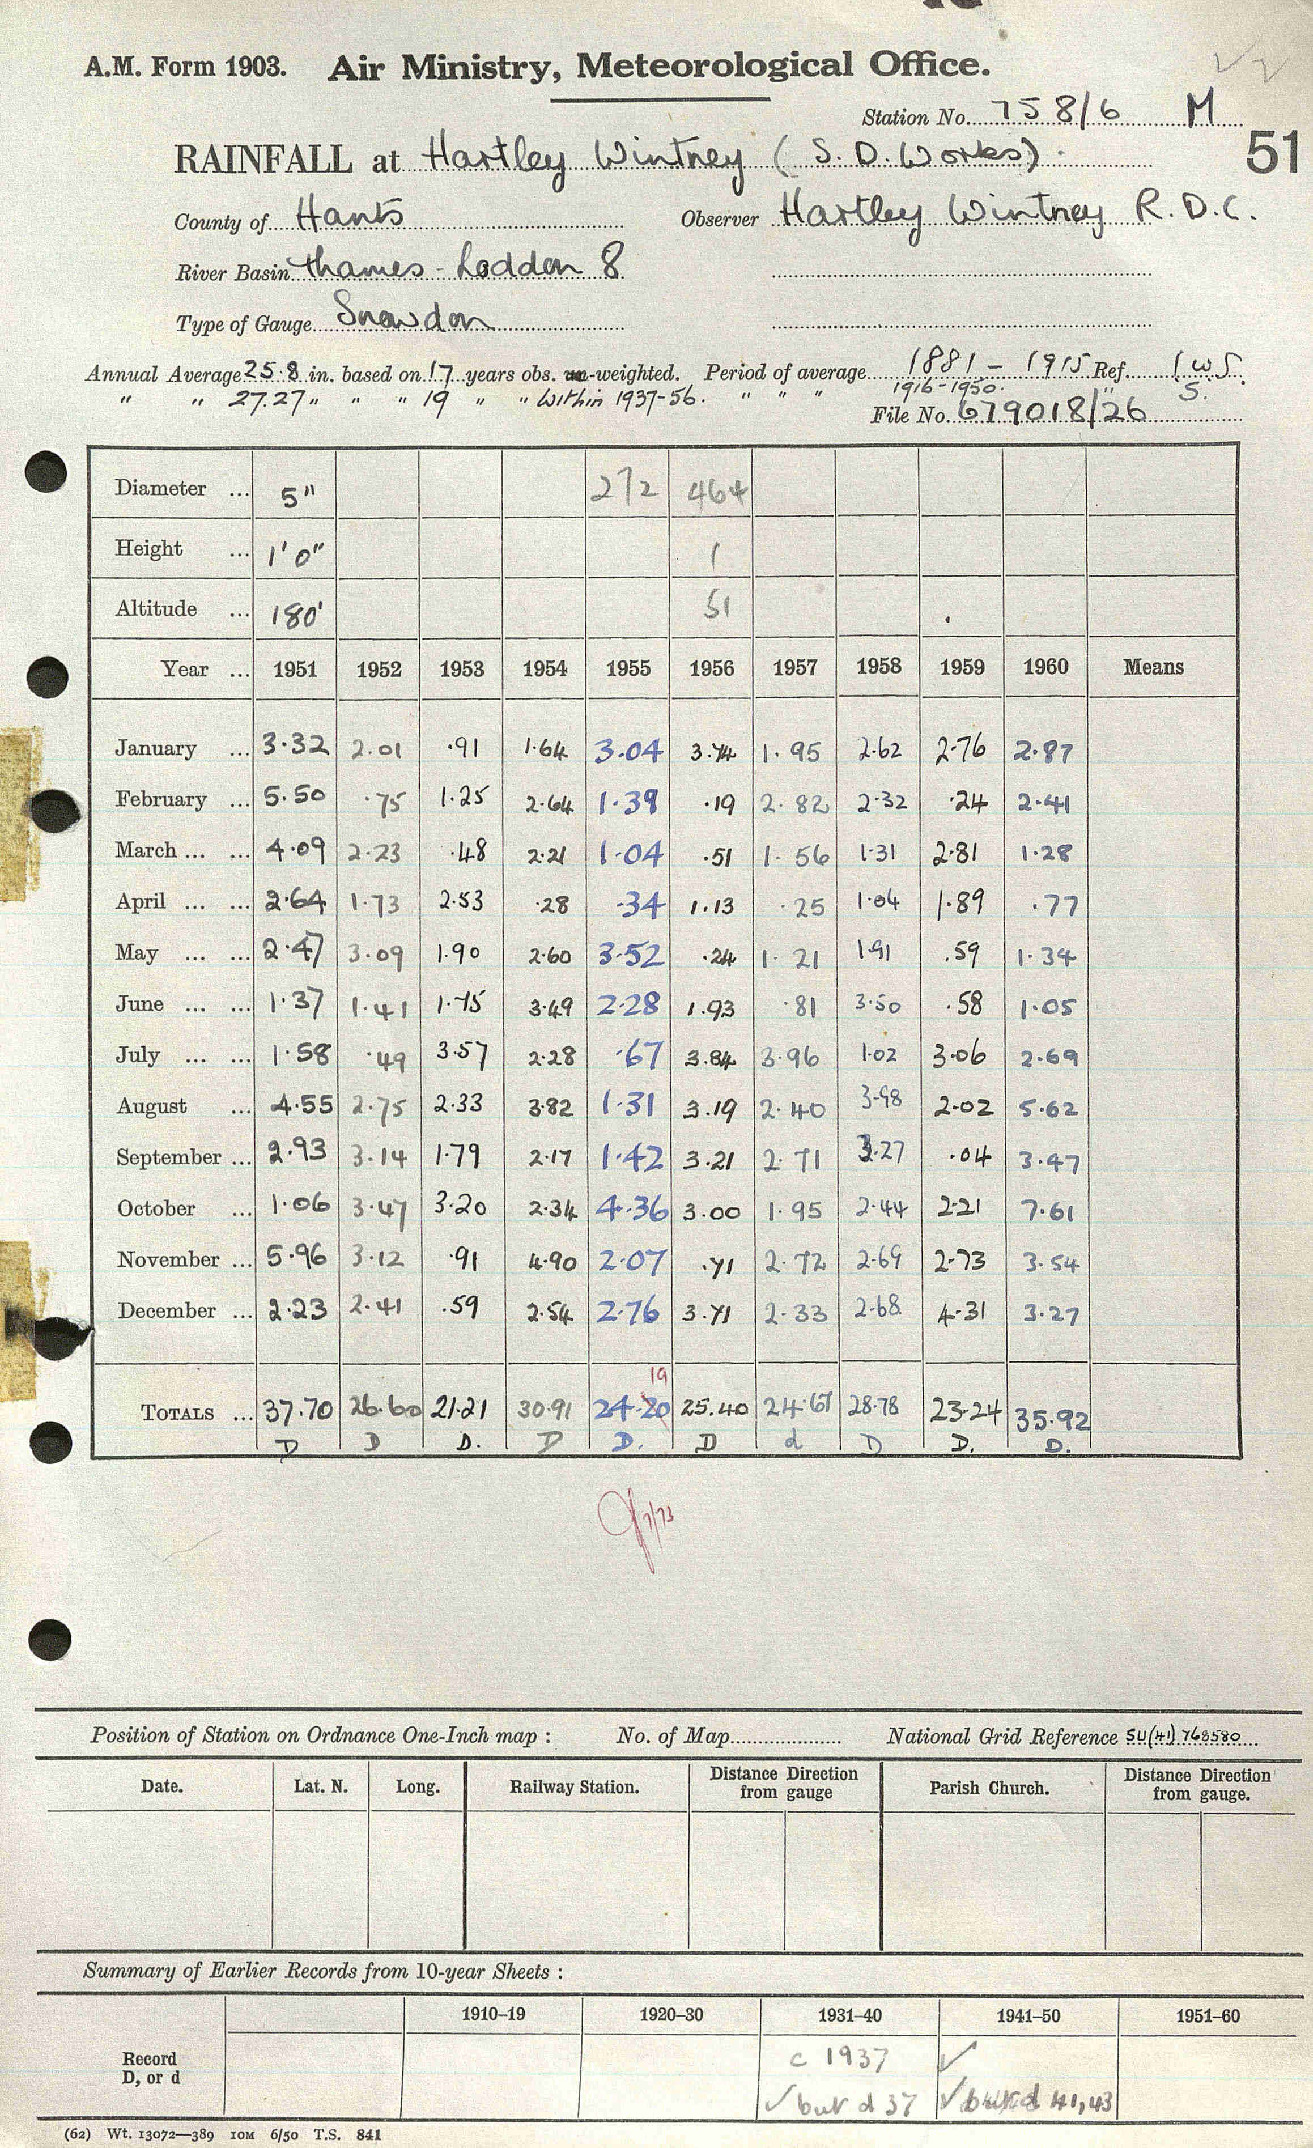 A.M. Form 1903. Air Ministry, Meteorological Office.
Station No. 758/6 M
51
RAINFALL at Hartley Wintney (S.D. Works)
County of Hants Observer Hartley Wintney R.D.C.
River Basin Thames - Loddon 8
Type of Gauge Snowdon
Annual Average 25.8 in. based on 17 years obs. un-weighted. Period of average 1881 - 1915 Ref.
" " 27.27 " " " 19 " " Within 1937-56. " " " 1916-1950. " S.
File No. 679018/26
Diameter ... 5" 272 464
Height ... 1'0" 1
Altitude ... 180' 51
Year ... 1951 1952 1953 1954 1955 1956 1957 1958 1959 1960 Means
January ... 3.32 2.01 .91 1.64 3.04 3.74 1.95 2.62 2.76 2.87
February ... 5.50 .75 1.25 2.64 1.39 .19 2.82 2.32 .24 2.41
March ... ... 4.09 2.23 .48 2.21 1.04 .51 1.56 1.31 2.81 1.28
April ... ... 2.64 1.73 2.53 .28 .34 1.13 .25 1.04 1.89 .77
May ... ... 2.47 3.09 1.90 2.60 3.52 .24 1.21 1.91 .59 1.34
June ... ... 1.37 1.41 1.75 3.49 2.28 1.93 .81 3.50 .58 1.05
July ... ... 1.58 .49 3.57 2.28 .67 3.84 3.96 1.02 3.06 2.69
August ... 4.55 2.75 2.33 3.82 1.31 3.19 2.40 3.98 2.02 5.62
September ... 2.93 3.14 1.79 2.17 1.42 3.21 2.71 3.27 .04 3.47
October ... 1.06 3.47 3.20 2.34 4.36 3.00 1.95 2.44 2.21 7.61
November ... 5.96 3.12 .91 4.90 2.07 .71 2.72 2.69 2.73 3.54
December ... 2.23 2.41 .59 2.54 2.76 3.71 2.33 2.68 4.31 3.27
19
TOTALS ... 37.70 26.60 21.21 30.91 24.20 25.40 24.67 28.78 23.24 35.92
D D D. D D. D d D D. D.
Position of Station on Ordnance One-Inch map : No. of Map National Grid Reference SU(41) 768580
Date. Lat. N. Long. Railway Station. Distance Direction from gauge Parish Church. Distance Direction from gauge.
Summary of Earlier Records from 10-year Sheets :
1910-19 1920-30 1931-40 1941-50 1951-60
Record c 1937 ✓
D, or d ✓ but d 37 ✓ but d 41, 43
(62) Wt. 13072—389 10M 6/50 T.S. 841